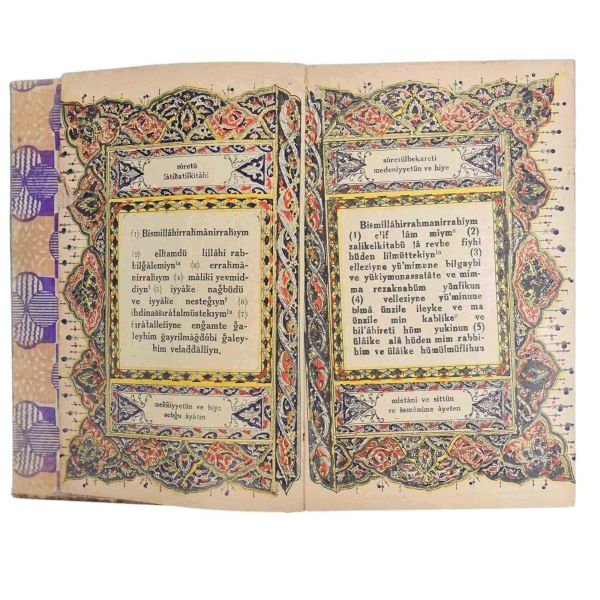 sûretü
fâtihatilkitâbi
(1) Bismillâhirrahmânirrahıym
(2) elhamdü lillâhi rab-
bilğâlemiyn (3) errahmâ-
nirrahıym (4) mâliki yevmid-
diyn (5) iyyâke nağbüdü
ve iyyâke nesteğıyn (6)
ihdinassırâtalmüstekıym (7)
sırâtalleziyne enğamte ğa-
leyhim ğayrilmağdûbi ğaley-
him veladdâlliyn,
mekkiyyetün ve hiye
sebğu âyâtin
sûretülbekareti
medeniyyetün ve hiye
Bismillâhirrahmanirrahiym
(1) elif lâm miym (2)
zalikelkitabü lâ reybe fiyhi
hüden lilmüttekiyn (3)
elleziyne yü'minune bilgaybi
ve yükiymunassalâte ve mim-
ma rezaknahüm yünfikun
(4) velleziyne yü'minune
bimâ ünzile ileyke ve ma
ünzile min kablike ve
bil'âhireti hüm yukinun (5)
ülâike alâ hüden mim rabbi-
him ve ülâike hümülmüflihun
mietâni ve sittün
ve semânûne âyeten